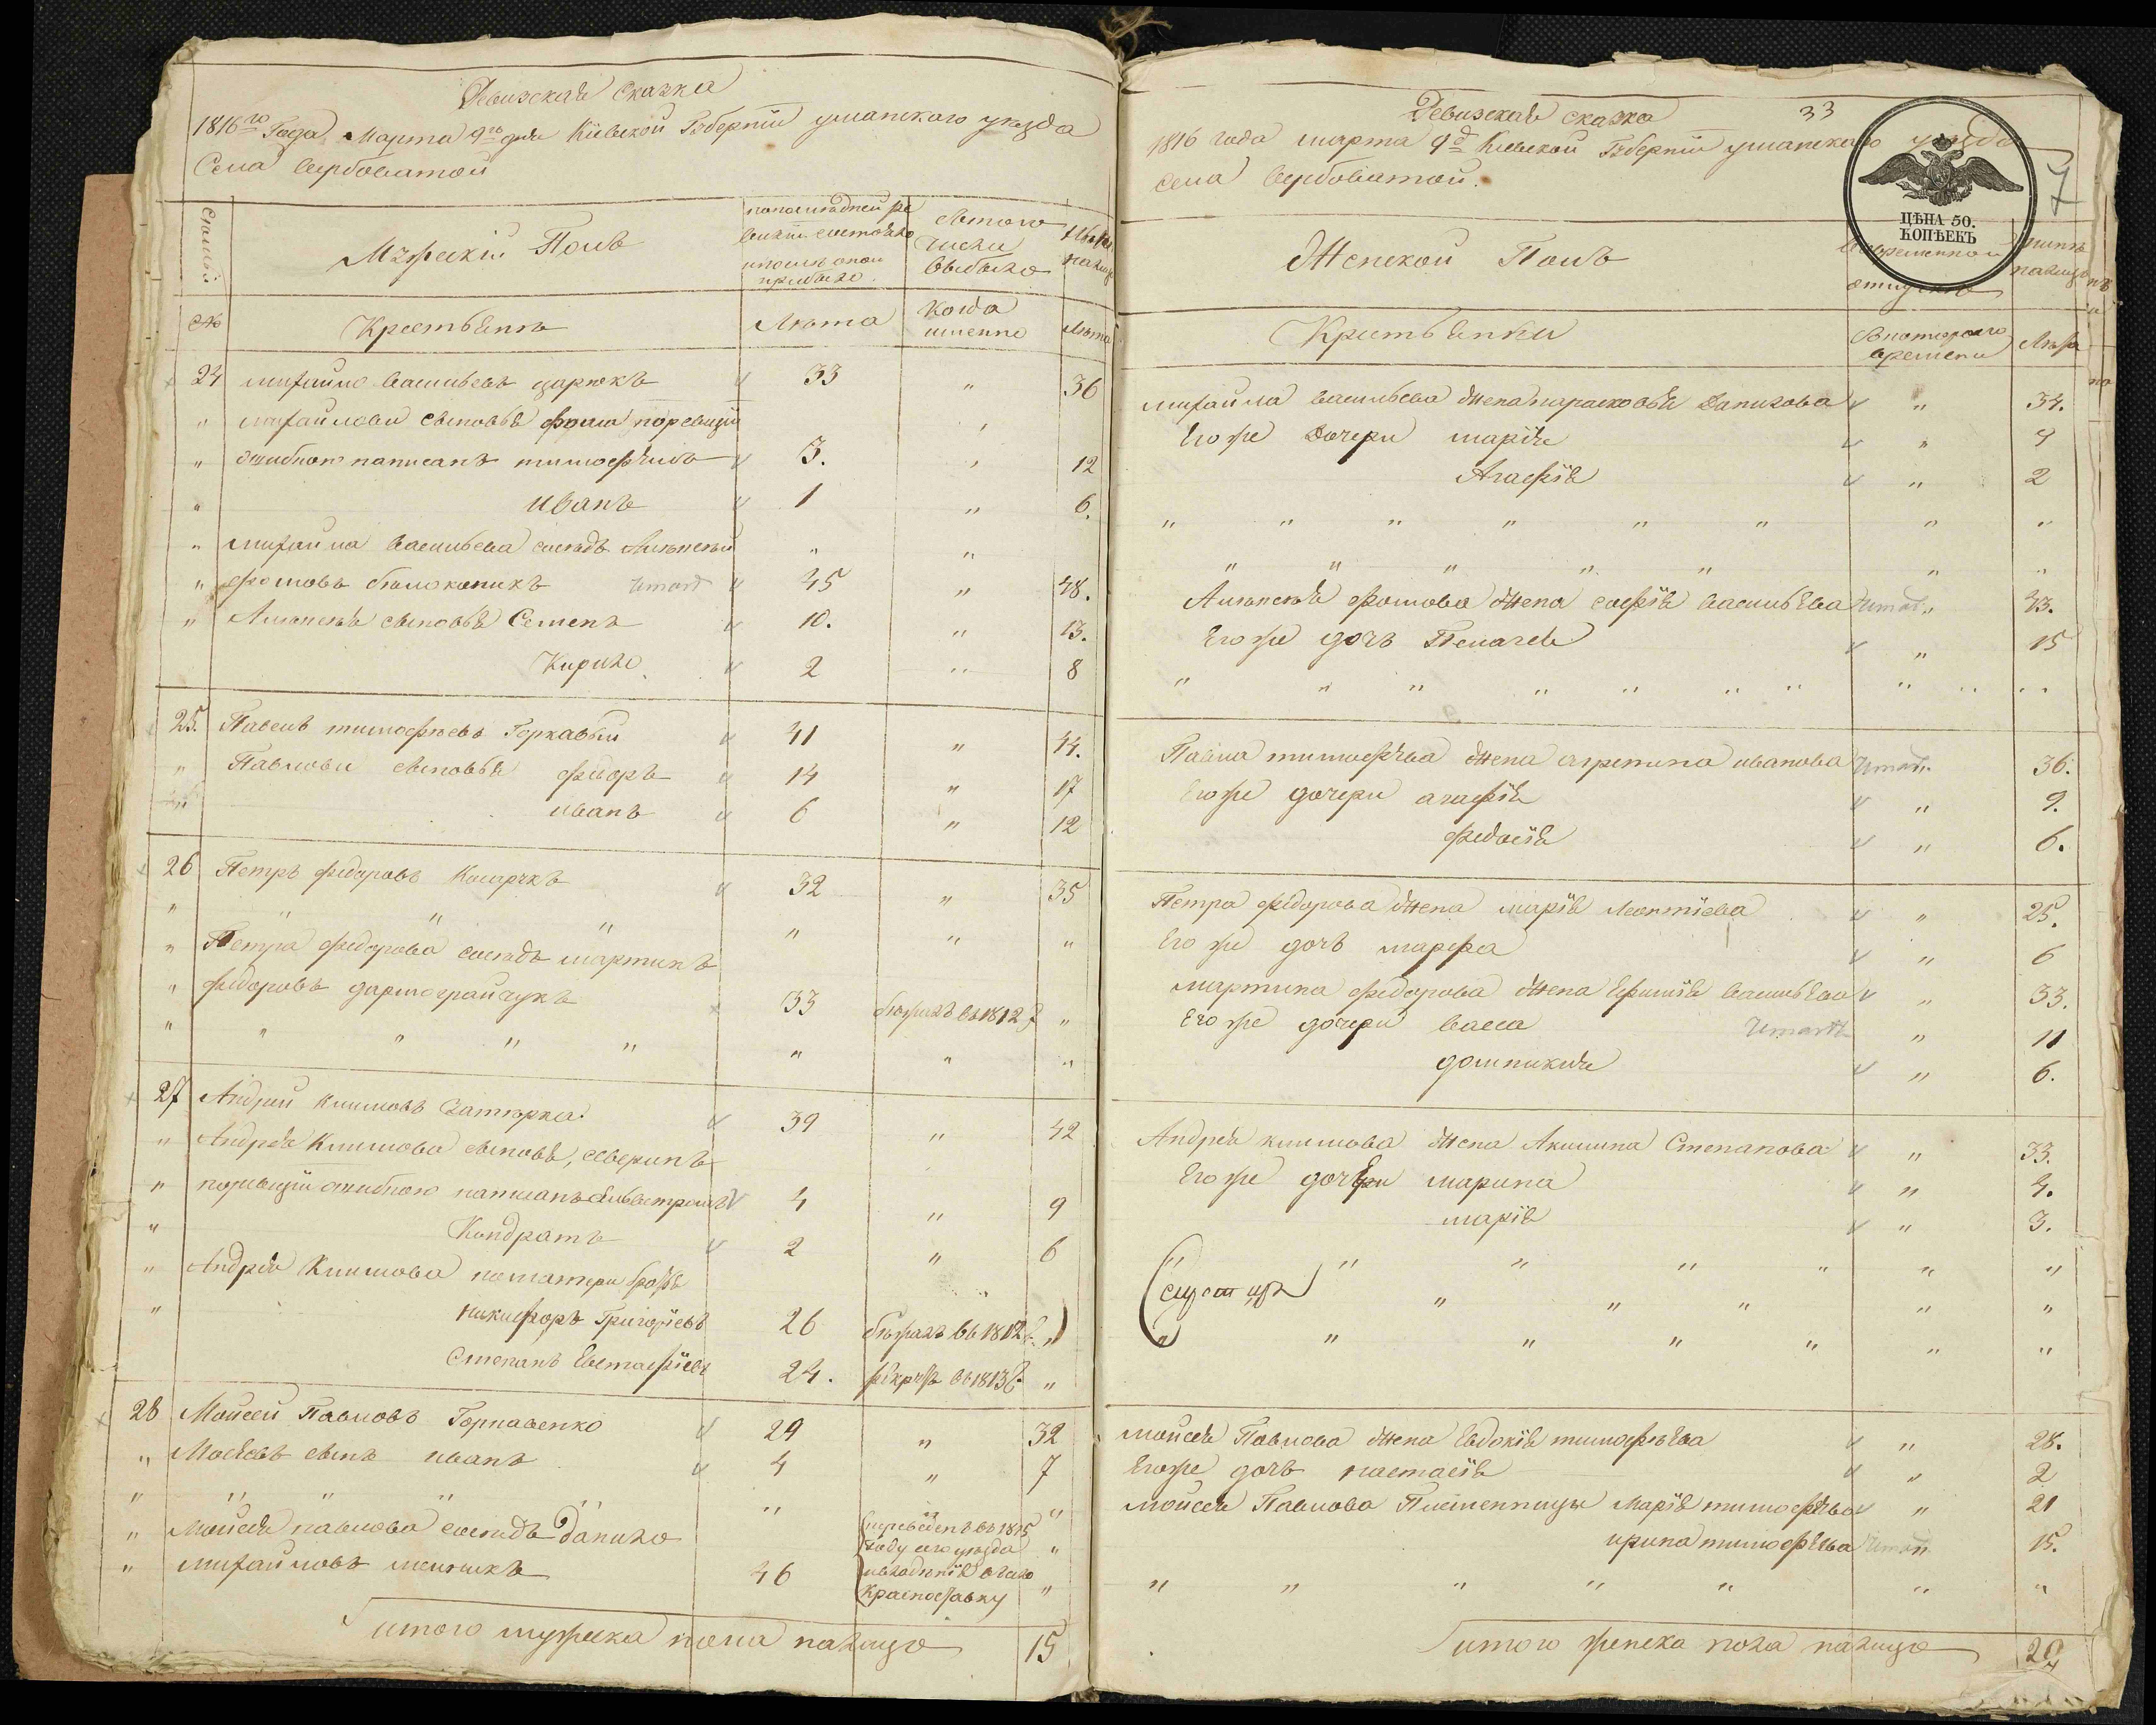 Ревизская Сказка
1816го Года Марта 9го дня Кіевской Губерніи уманского уезда
Села вербоватой
Мужескій Полъ
по последней ре
визіи состояло
и после оной
прибыло
Изтого
числа
выбыло
Ныне
налицо
семьи
№
Крестьянъ
Лета
Когда
именно
Лета
24 михайло васильевъ царюкъ 33 " 36
" михайловы сыновья фома поревизіи
" ошибкою написанъ тимофеемъ 3. " 12
" иванъ 1 " 6.
" михайла васильева соседъ Алексей " "
" фомовъ белоконикъ 45 " 48.
" Алексея сыновья Семенъ 10. " 13.
Кирило 2 " 8
25. Павелъ тимофеевъ Горкавый 41 " 44.
" Павловы сыновья фiодоръ 14 " 17
" иванъ 6 " 12
26 Петръ федоровъ 32 " 35
" " " " " " "
" Петра федорова соседъ мартинъ
" федоровъ дармограйчукъ 33 бежалъ въ 1812г. "
" " " " " " " "
27 Андрей климовъ Затирка 39 " 42
" Андрея Климова сыновья, северинъ
" поревизіи ошибкою написанъ Силвестромъ 4 " 9
" Кондратъ 2 " 6
" Андрея Климова поматери братья
" никифоръ Григоріевъ 26 бежалъ въ 1812г. "
Степанъ Евстафіевъ 24. рекрутъ въ 1813г. "
28 Мойсей Павловъ Горкавенко 29 " 32
" Мосеевъ сынъ иванъ 4 " 7
" " " " " " "
" Мойсея павлова соседъ данило переведенъ въ 1815
году сего уезда "
" михайловъ 46
Красноставку "
итого мужеска пола налицо 15
Ревизская сказка 33
1816 года марта 9д Кіевской Губерніи уманскаго уезда
села Вербоватой.
7
ЦѢНА 50.
КОПѢЕКЪ
Женской Полъ
Во временной
отлучке
Ныне
налицо
Крестьянки
Скотораго
времени
Лета
михайла васильева жена парасковья данилова " 34.
Его же дочери марія " 4
Агафія " 2
" " " " " " " "
" " " " " " "
Алексея фомова жена софія васильева " 43.
Его же дочь Пелагея " 15
" " " " " " " " " " "
Павла тимофеева жена агрепина иванова " 36.
Его же дочери агафія " 9.
федосія " 6.
Петра федорова жена марія Леонтіева " 25.
Его же дочь марфа " 6
мартина федорова жена Ефимія васильева " 33.
Его же дочери васса " 11
домникия " 6.
Андрея климова жена Акилина Степанова " 33.
Его же дочери марина " 4.
марія " 3.
" " " " " " "
" " " " "
" " " " " " "
мойсея Павлова жена Евдокія тимофеева " 28.
Его же дочь настасія " 2
мойсея Павлова Племенницы Марія тимофеева " 21
ирина тимофеева " 15.
" " " " " " "
итого женска пола налицо 20